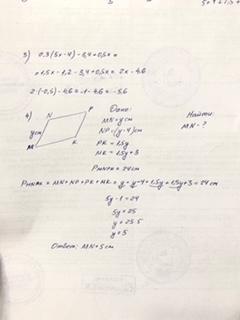 3) 0,3(5x-4) - 3,4 + 0,5x =
= 1,5x - 1,2 - 3,4 + 0,5x = 2x - 4,6
2·(-0,5) - 4,6 = -1 - 4,6 = -5,6
4) Дано: Найти:
N P MN = y см MN - ?
y см NP = (y-4) см
M K PK = 1,5y
MK = 1,5y + 3
PMNPK = 24 см
PMNPK = MN + NP + PK + MK = y + y - 4 + 1,5y + 1,5y + 3 = 24 см
5y - 1 = 24
5y = 25
y = 25:5
y = 5
Ответ: MN = 5 см